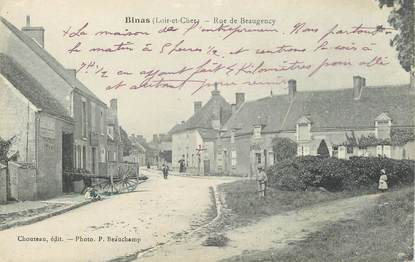 Binas (Loir-et-Cher) - Rue de Beaugency
+ La maison de l'entrepreneur. Nous partons
le matin à 5 heures 1/2 et rentrons le soir à
7 h 1/2 en ayant fait 4 Kilomètres pour aller
et autant pour revenir
Chouteau, édit. - Photo. P. Beauchamp